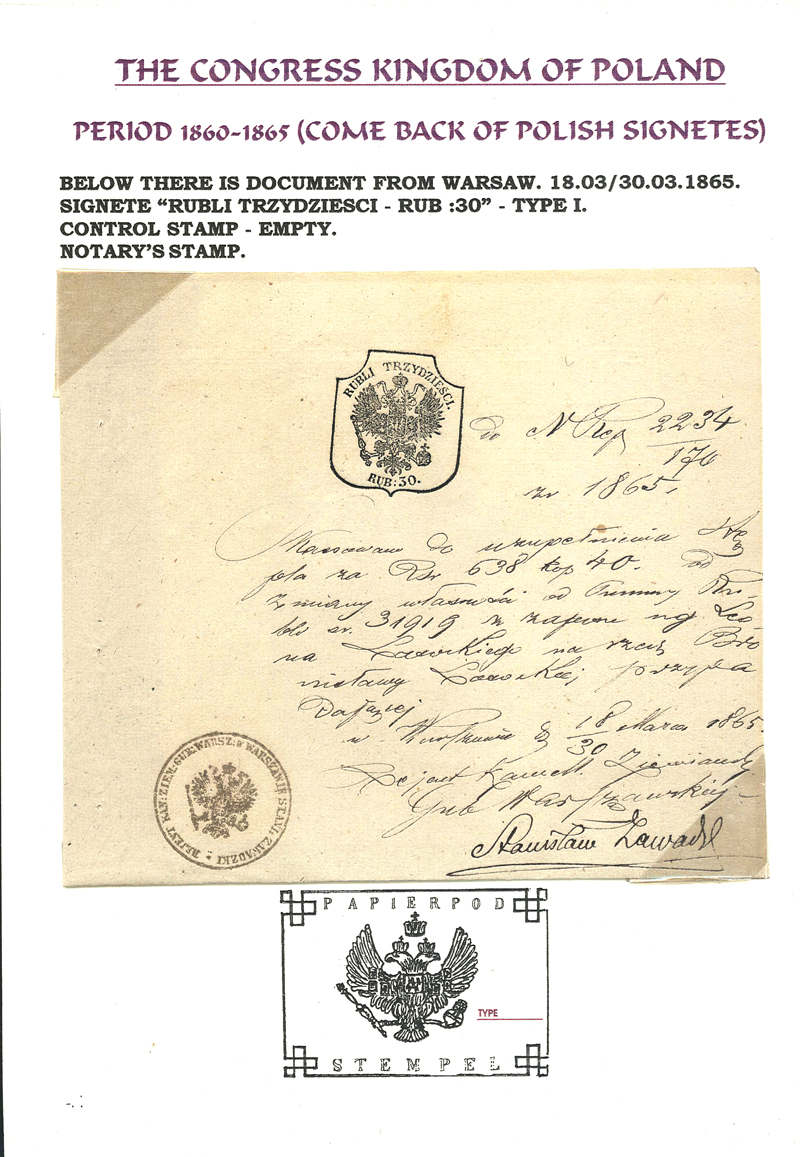 THE CONGRESS KINGDOM OF POLAND
PERIOD 1860-1865 (COME BACK OF POLISH SIGNETES)
BELOW THERE IS DOCUMENT FROM WARSAW. 18.03/30.03.1865.
SIGNETE “RUBLI TRZYDZIESCI - RUB :30” - TYPE I.
CONTROL STAMP - EMPTY.
NOTARY’S STAMP.
RUBLI TRZYDZIESCI.
RUB:30.
do N Rep 2234
170
zr 1865.
Kassowano do uzupełnienia Stę
pla za Rsr 638 kop 40. od
zmiany własności od Summy Ru
bli sr. 31919 z
na na rzecz Bro
nisławy przypa
dającej
w d 18/30 Marca 1865.
Rejent Kancell. Ziemiańskiej
Gub Warszawskiej
Stanisław Zawadzki
REJENT KAN: ZIEM: GUB: WARSZ: W WARSZAWIE STANI: ZAWADZKI
PAPIER POD
TYPE
STEMPEL